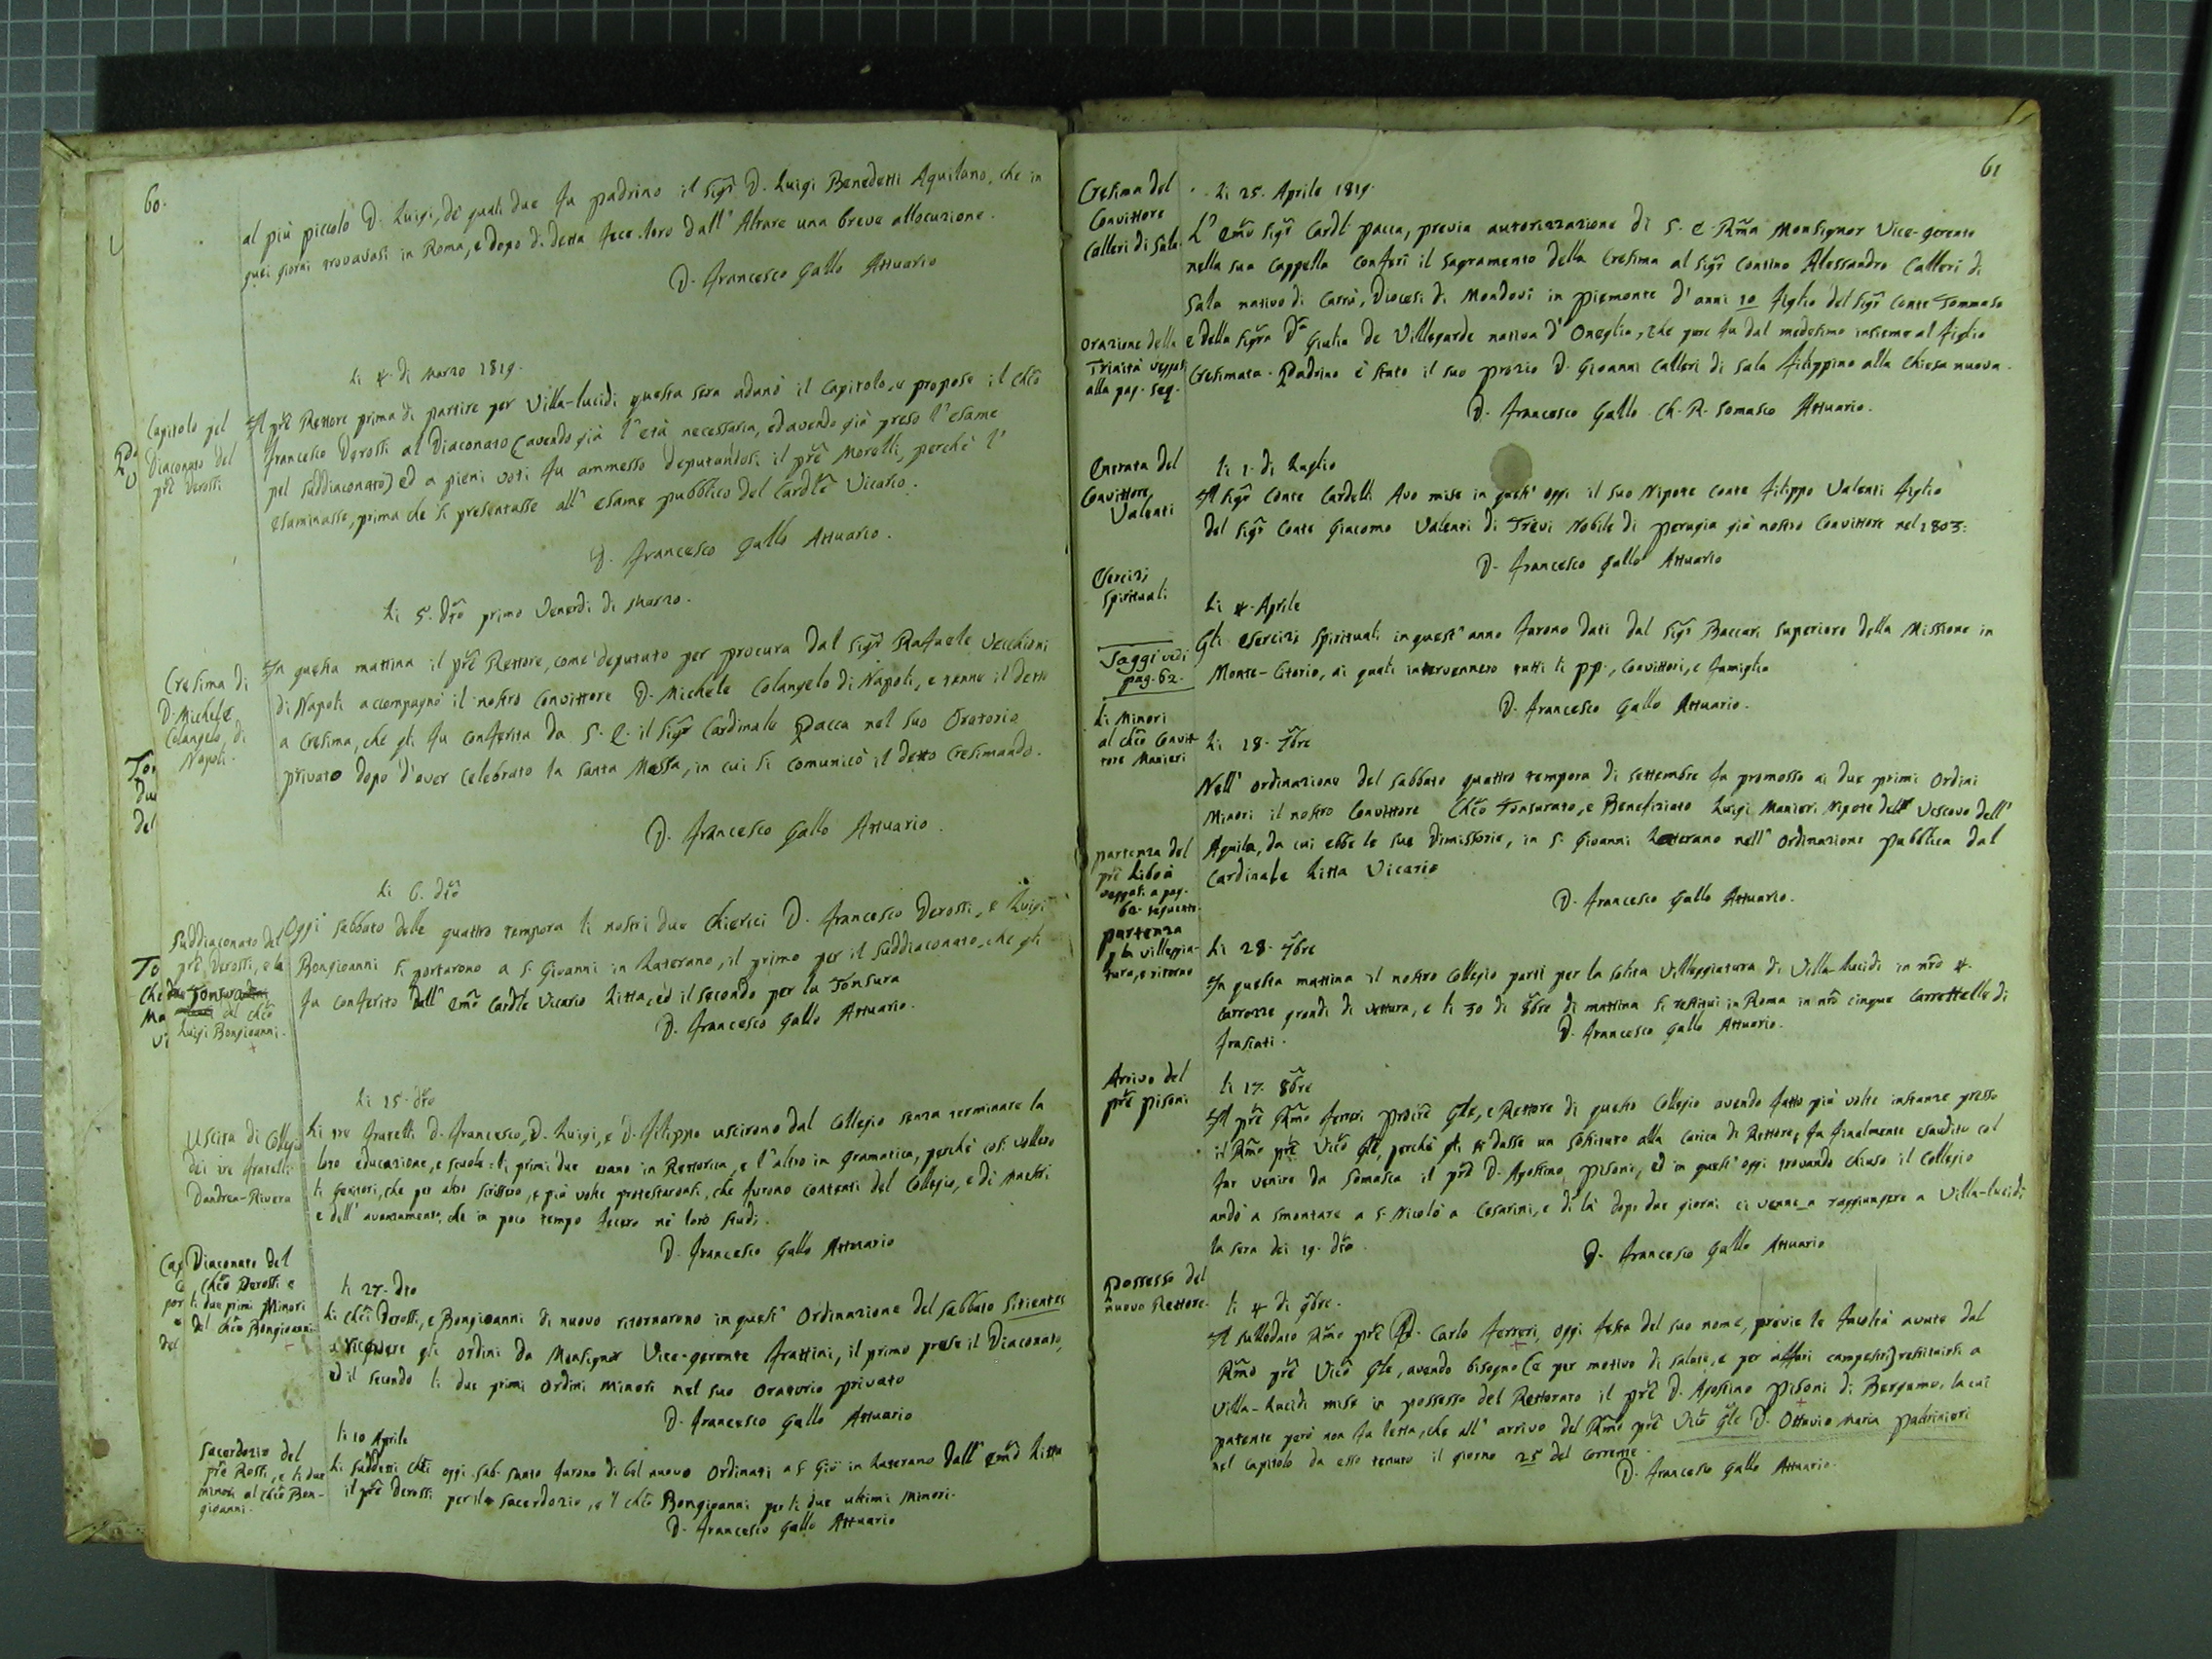 60.
al più piccolo D. Luigi, de' quali due fu padrino il Sigr̃ D. Luigi Benedetti Aquilano, che in
quei giorni trovavasi in Roma, e dopo di detta fece loro dall' Altare una breve allocuzione.
D. Francesco Gallo Attuario
li 4. di Marzo 1819.
Capitolo pel
Diaconato del
pr̃e Derossi
Il pr̃e Rettore prima di partire per Villa-lucidi questa sera adunò il Capitolo, e propose il Chc̃o
Francesco Derossi al Diaconato (avendo già l'età necessaria, ed avendo già preso l'esame
pel suddiaconato) ed a pieni voti fu ammesso deputandosi il pr̃e Morelli, perchè l'
esaminasse, prima che si presentasse all' esame pubblico del Cardl̃e Vicario.
D. Francesco Gallo Attuario.
li 5. dt̃o primo Venerdì di Marzo.
Cresima di
D. Michele
Colangelo di
Napoli.
In questa mattina il pr̃e Rettore, come deputato per procura dal Sigr̃ Rafaele Vecchioni
di Napoli accompagnò il nostro Convittore D. Michele Colangelo di Napoli, e tenne il detto
a Cresima, che gli fu conferita da S. E. il Sigr̃ Cardinale Pacca nel suo Oratorio
privato dopo d'aver celebrato la santa Messa, in cui si comunicò il detto Cresimando.
D. Francesco Gallo Attuario.
li 6. dt̃o
Suddiaconato del
pr̃e Derossi, e la
Tonsura
al Chc̃o
Luigi Bongioanni.
Oggi sabbato delle quattro tempora li nostri due Chierici D. Francesco Derossi, e Luigi
Bongioanni si portarono a S. Giovanni in Laterano, il primo per il suddiaconato, che gli
fu conferito dall' Em̃o Cardl̃e Vicario Litta, ed il secondo per la Tonsura
D. Francesco Gallo Attuario.
li 15. dt̃o
Uscita di Collegio
dei tre fratelli
Dandrea-Rivera
Li tre fratelli D. Francesco, D. Luigi, e D. Filippo uscirono dal Collegio senza terminare la
loro educazione, e scuole: li primi due erano in Rettorica, e l'altro in Gramatica, perchè così vollero
li genitori, che per altro scrissero, e più volte protestaronsi, che furono contenti del Collegio, e di Maestri
e dell' avanzamento, che in poco tempo fecero ne' loro studi.
D. Francesco Gallo Attuario
Diaconato del
Chc̃o Derossi e
li due primi Minori
del Chc̃o Bongioanni
li 27. dto
Li Chc̃i Derossi, e Bongioanni di nuovo ritornarono in quest' Ordinazione del Sabbato Sitientes
a ricevere gli ordini da Monsignor Vice-gerente Frattini, il primo prese il Diaconato,
ed il secondo li due primi Ordini Minori nel suo Oratorio privato
D. Francesco Gallo Attuario
Sacerdozio del
pr̃e Rossi, e li due
minori al Chc̃o Bon-
gioanni.
li 10 Aprile
Li suddetti Chc̃i oggi Sab. Santo furono di bel nuovo Ordinati a S. Gio in Laterano dall' Em̃o Litta
il pr̃e Derossi per il Sacerdozio, e 'l Chc̃o Bongioanni per li due ultimi Minori.
D. Francesco Gallo Attuario
61
Cresima del
Convittore
Calleri di Sala
li 25. Aprile 1819.
L' Em̃o Sigr̃ Cardl̃ Pacca, previa autorizzazione di S. E. Rm̃a Monsignor Vice-gerente
nella sua Cappella conferì il Sagramento della Cresima al Sigr̃ Contino Alessandro Calleri di
Sala nativo di Carrù, Diocesi di Mondovì in Piemonte d'anni 10 figlio del Sigr̃ Conte Tommaso
e della Sigr̃a Da Giulia de Villegarde nativa d'Oneglia, che pure fu dal medesimo insieme al figlio
Cresimata. Padrino è stato il suo prozio D. Gioanni Calleri di Sala Filippino alla Chiesa nuova.
D. Francesco Gallo Ch. R. Somasco Attuario.
Orazione della
Trinità veggasi
alla pag. seg.
Entrata del
Convittore
Valenti
li 1. di Luglio
Il Sigr̃ Conte Cardelli Avo mise in quest' oggi il suo Nipote Conte Filippo Valenti figlio
del Sigr̃ Conte Giacomo Valenti di Trevi Nobile di Perugia già nostro Convittore nel 1803.
D. Francesco Gallo Attuario
Esercizj
Spirituali
li 4. Aprile
Gli Esercizj Spirituali in quest' anno furono dati dal Sigr̃ Baccari Superiore della Missione in
Monte-Citorio, ai quali intervennero tutti li PP., Convittori, e famiglia
D. Francesco Gallo Attuario.
Saggi vedi
pag. 62.
Li Minori
al Chc̃o Convit-
tore Manieri
Li 18. 7br̃e
Nell' ordinazione del sabbato quattro tempora di settembre fu promosso ai due primi Ordini
Minori il nostro Convittore Chc̃o Tonsurato, e Benefiziato Luigi Manieri Nipote del Vescovo dell'
Aquila, da cui ebbe le sue Dimissorie, in S. Gioanni Laterano nell' Ordinazione pubblica dal
Cardinale Litta Vicario
D. Francesco Gallo Attuario.
partenza del
pr̃e Liboà
veggasi a pag.
62. seguente.
partenza
p la villeggia-
tura, e ritorno
Li 28. 7br̃e
In questa mattina il nostro Collegio partì per la solita Villeggiatura di Villa-lucidi in nr̃o 4.
Carrozze grandi di vettura, e li 30 di 8br̃e di mattina si restituì in Roma in nr̃o cinque Carrettelle di
Frascati.
D. Francesco Gallo Attuario.
Arrivo del
pr̃e Pisoni
li 17. 8br̃e
Il pr̃e Rm̃o Ferreri Procr̃e Gl̃e, e Rettore di questo Collegio avendo fatto più volte instanze presso
il Rm̃o pr̃e Vicr̃o Gl̃e, perchè gli si dasse un sostituto alla carica di Rettore, fu finalmente esaudito col
far venire da Somasca il pr̃e D. Agostino Pisoni, ed in quest' oggi trovando chiuso il Collegio
andò a smontare a S. Nicolò a Cesarini, e di là dopo due giorni ci venne a raggiungere a Villa-lucidi
la sera dei 19. dt̃o.
D. Francesco Gallo Attuario
Possesso del
nuovo Rettore.
li 4 di 9bre.
Il sullodato Rm̃o pr̃e D. Carlo Ferreri, oggi festa del suo nome, previe le facoltà avute dal
Rm̃o pr̃e Vicr̃o Gl̃e, avendo bisogno (e per motivo di salute, e per affari campestri) restituirsi a
Villa-lucidi mise in possesso del Rettorato il pr̃e D. Agostino Pisoni di Bergamo, la cui
patente però non fu letta, che all' arrivo del Rm̃o pr̃e Vicr̃o Gl̃e D. Ottavio Maria Paltrinieri
nel Capitolo da esso tenuto il giorno 25 del corrente.
D. Francesco Gallo Attuario.